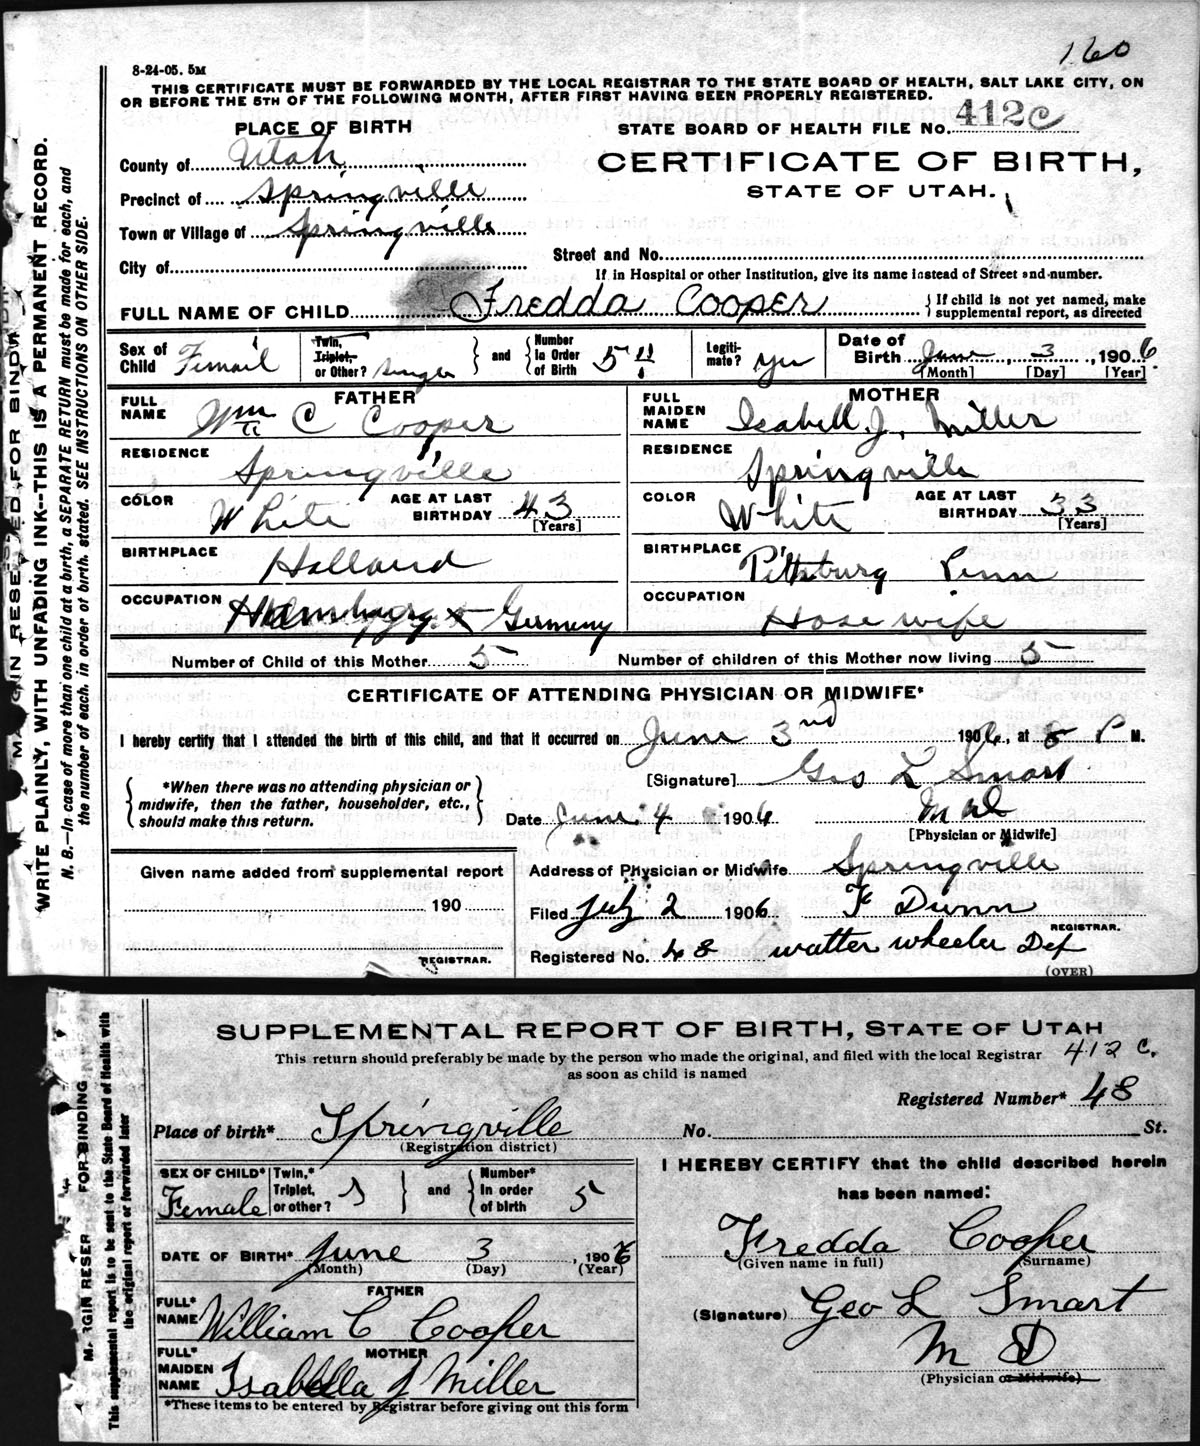 160
8-24-05. 5M
THIS CERTIFICATE MUST BE FORWARDED BY THE LOCAL REGISTRAR TO THE STATE BOARD OF HEALTH, SALT LAKE CITY, ON
OR BEFORE THE 5TH OF THE FOLLOWING MONTH, AFTER FIRST HAVING BEEN PROPERLY REGISTERED.
PLACE OF BIRTH
STATE BOARD OF HEALTH FILE No. 412 C
County of Utah
CERTIFICATE OF BIRTH,
STATE OF UTAH.
Precinct of Springville
Town or Village of Springville
City of
Street and No.
If in Hospital or other Institution, give its name instead of Street and number.
FULL NAME OF CHILD Fredda Cooper
If child is not yet named, make
supplemental report, as directed
Sex of Child Femail
Twin, Triplet, or Other? Single
and
Number in Order of Birth 5"
Legiti-mate? yes
Date of Birth June 3, 1906
[Month] [Day] [Year]
FATHER
FULL NAME Wm C Cooper
MOTHER
FULL MAIDEN NAME Isabell J. Miller
RESIDENCE Springville
RESIDENCE Springville
COLOR White
AGE AT LAST BIRTHDAY 43 [Years]
COLOR White
AGE AT LAST BIRTHDAY 33 [Years]
BIRTHPLACE Holland
BIRTHPLACE Pittsburg Penn
OCCUPATION Germeny
OCCUPATION Hose wife
Number of Child of this Mother 5
Number of children of this Mother now living 5
CERTIFICATE OF ATTENDING PHYSICIAN OR MIDWIFE*
I hereby certify that I attended the birth of this child, and that it occurred on June 3nd 1906, at 8 P M.
[Signature] Geo L Smart
*When there was no attending physician or
midwife, then the father, householder, etc.,
should make this return.
Date June 4 1906
M d
[Physician or Midwife]
Given name added from supplemental report
190
REGISTRAR.
Address of Physician or Midwife Springville
Filed July 2 1906 F Dunn
REGISTRAR.
Registered No. 48 Walter Wheeler Dep
(OVER)
MARGIN RESERVED FOR BINDING
WRITE PLAINLY, WITH UNFADING INK--THIS IS A PERMANENT RECORD.
N. B.—In case of more than one child at a birth, a SEPARATE RETURN must be made for each, and
the number of each, in order of birth, stated. SEE INSTRUCTIONS ON OTHER SIDE.
SUPPLEMENTAL REPORT OF BIRTH, STATE OF UTAH
This return should preferably be made by the person who made the original, and filed with the local Registrar
as soon as child is named
412 C.
Registered Number* 48
Place of birth* Springville
(Registration district)
No. St.
SEX OF CHILD* Female
Twin,* Triplet, or other? S
and
Number* in order of birth 5
I HEREBY CERTIFY that the child described herein
has been named:
DATE OF BIRTH* June 3, 1906
(Month) (Day) (Year)
Fredda Cooper
(Given name in full) (Surname)
FATHER
FULL* NAME William C Cooper
(Signature) Geo L Smart
M D
(Physician or Midwife)
MOTHER
FULL* MAIDEN NAME Isabella J Miller
*These items to be entered by Registrar before giving out this form
M. RGIN RESER FOR BINDING
This supplemental report is to be sent to the State Board of Health with
the original report or forwarded later